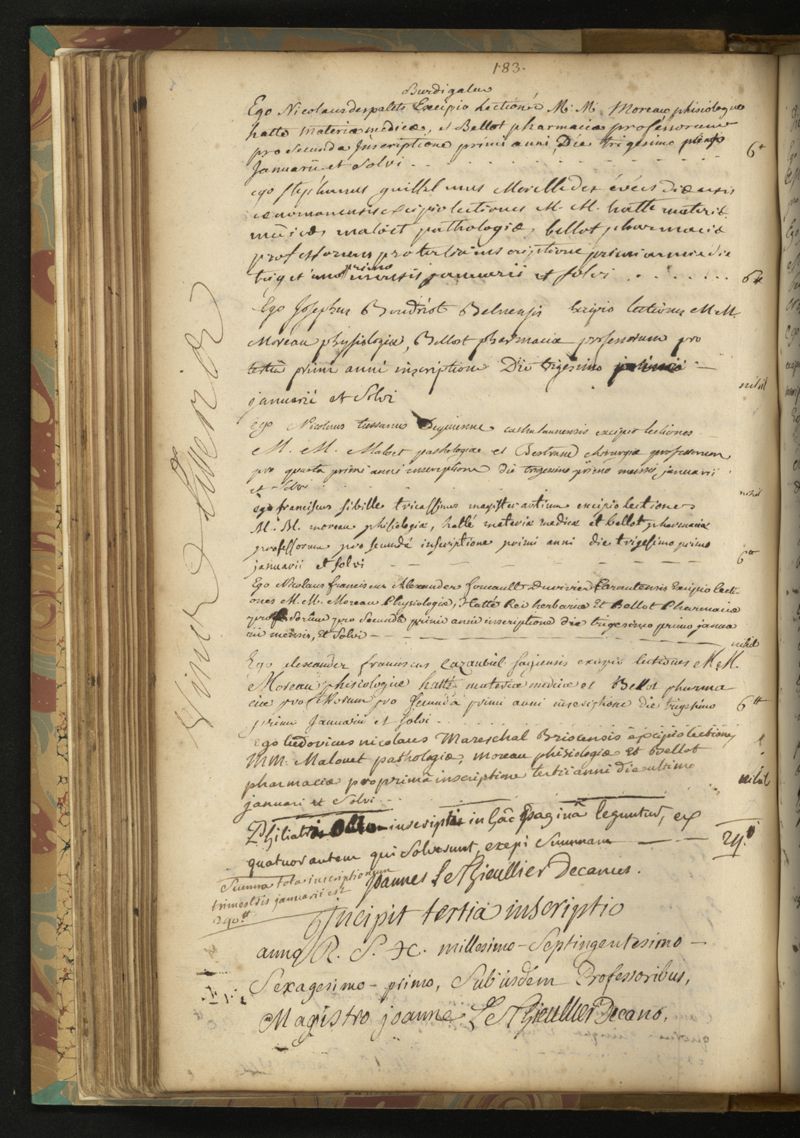 183.
Burdigalus
Ego Nicolaus despalets Excipio Lectiones M. M. Moreau phisiologiae
hatte materiae medicae, et Bellot pharmaciae professorum
pro secunda Inscriptione primi anni Die trigesimo
Januarii et Solvi 6tt
ego stephanus guillelmus Morelle
cenomanensis excipio lectiones M. M. hatte materiae
medicae, maloet pathologiae, bellot pharmaciae
professorum pro tertia inscriptione primi anni die
trigesimo primo mensis januarii et solvi 6tt
Ego Josephus Boudriot Belnensis Excipio lectiones M. M.
Moreau physiologiae, Bellot pharmaciae professorum pro
primi anni inscriptione Die trigesimo
januarii et Solvi nihil
Ego Nicolaus cathalaunensis excipio lectiones
M. M. Maloet pathologiae et Bertrand chirurgiae professorum
pro quarta primi anni inscriptione die trigesimo primo mensis januarii
et solvi nihil
ego franciscus sibille tricassinus magister artium excipio lectiones
M. M. moreau phisiologiae, hatté materiae medicae et bellot pharmaciae
professorum pro secundâ inscriptione primi anni die trigesimo primo
januarii et solvi 6tt
Ego Nicolaus franciscus Alexander foucault Duvivier Excipio lecti-
ones M. M. Moreau Physiologiae, Hatte Rei herbariae Et Bellot Pharmaciae
professorum pro secunda primi anni inscriptione die trigesimo primo janua
rii mensis, Et Solvi nihil
Ego alexander franciscus sagiensis excipio lectiones M. M.
Moreau phisiologiae hatté materiae medicae et Bellot pharma-
ciae professorum pro secunda primi anni inscriptione die trigesimo
primo Januarii et solvi 6tt
Ego ludovicus nicolaus Mareschal Briocensis excipio lectiones
MM. Malouet pathologiae, moreau phisiologiae et Bellot
pharmaciae pro prima inscriptione tertii anni die ultimo
januari et Solvi nihil
Philiatri Octo inscripti in hâc paginâ leguntur, ex
quatuor autem qui Solverunt, excepi Summam 24tt
Joannes Le Thieullier Decanus.
Summa tota inscriptionum
trimestris januarii est
Incipit tertia inscriptio
anno R. S. H. millesimo-Septingentesimo-
Sexagesimo-primo, Sub iisdem Professoribus,
Magistro joanne Le Thieullier Decano.